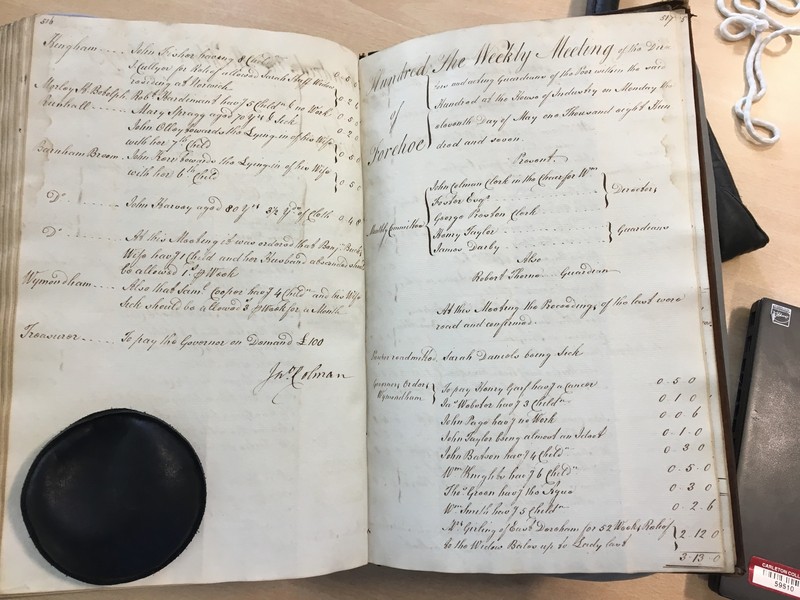 516
Hingham John Fosker having 8 Child
J. Cullyer for Relief allowed Sarah Widow
residing at Norwich
Morley St. Botolph Robt. Hardement havg 5 Childn. & no Work
Runhall Mary Spragg aged 70 Yrs. & Sick
John Olley towards the Lying-in of his Wife
with her 7th Child
Barnham Broom John Kerr towards the Lying-in of his Wife
with her 6th Child
Do. John Harvey aged 80 Yrs 3½ Yds of Cloth 0.4.8
Do. At this Meeting it was ordered that Benjn.
Wife havg 1 Child and her Husband absconded should
be allowed 1s. ⅌ Week
Wymondham Also that Saml. Cooper havg 4 Childn. and his Wife
Sick should be allowed 3s. ⅌ Week for a Month
Treasurer To pay the Governor on Demand £100
Jno. Colman
517
Hundred of Forehoe
The Weekly Meeting of the Direc
tors and acting Guardians of the Poor within the said
Hundred at the House of Industry on Monday the
eleventh Day of May one Thousand eight Hun
dred and seven
Present,
Monthly Committee
John Colman Clerk in the Chair for Wm.
Foster Esqr.
George Preston Clerk
Directors
Henry Taylor
James Darby
Guardians
Also
Robert Thorne Guardian
At this Meeting the Proceedings of the last were
read and confirmed.
Pauper readmitted. Sarah Daniels being Sick
Governors Orders
Wymondham
To pay Henry Garf havg a Cancer 0.5.0
Jno. Webster havg 3 Childn. 0.1.0
John Page havg no Work 0.0.6
John Taylor being almost an Ideot 0.1.0
John Batson havg 4 Childn. 0.3.0
Wm. Knights havg 6 Childn. 0.5.0
Thos. Green havg the Ague 0.3.0
Wm. Smith havg 5 Childn. 0.2.6
Mrs. Girling of East Dereham for 52 Weeks Relief
to the Widow Bales up to Lady last 2.12.0
3.13.0
CARLETON COLL
59810